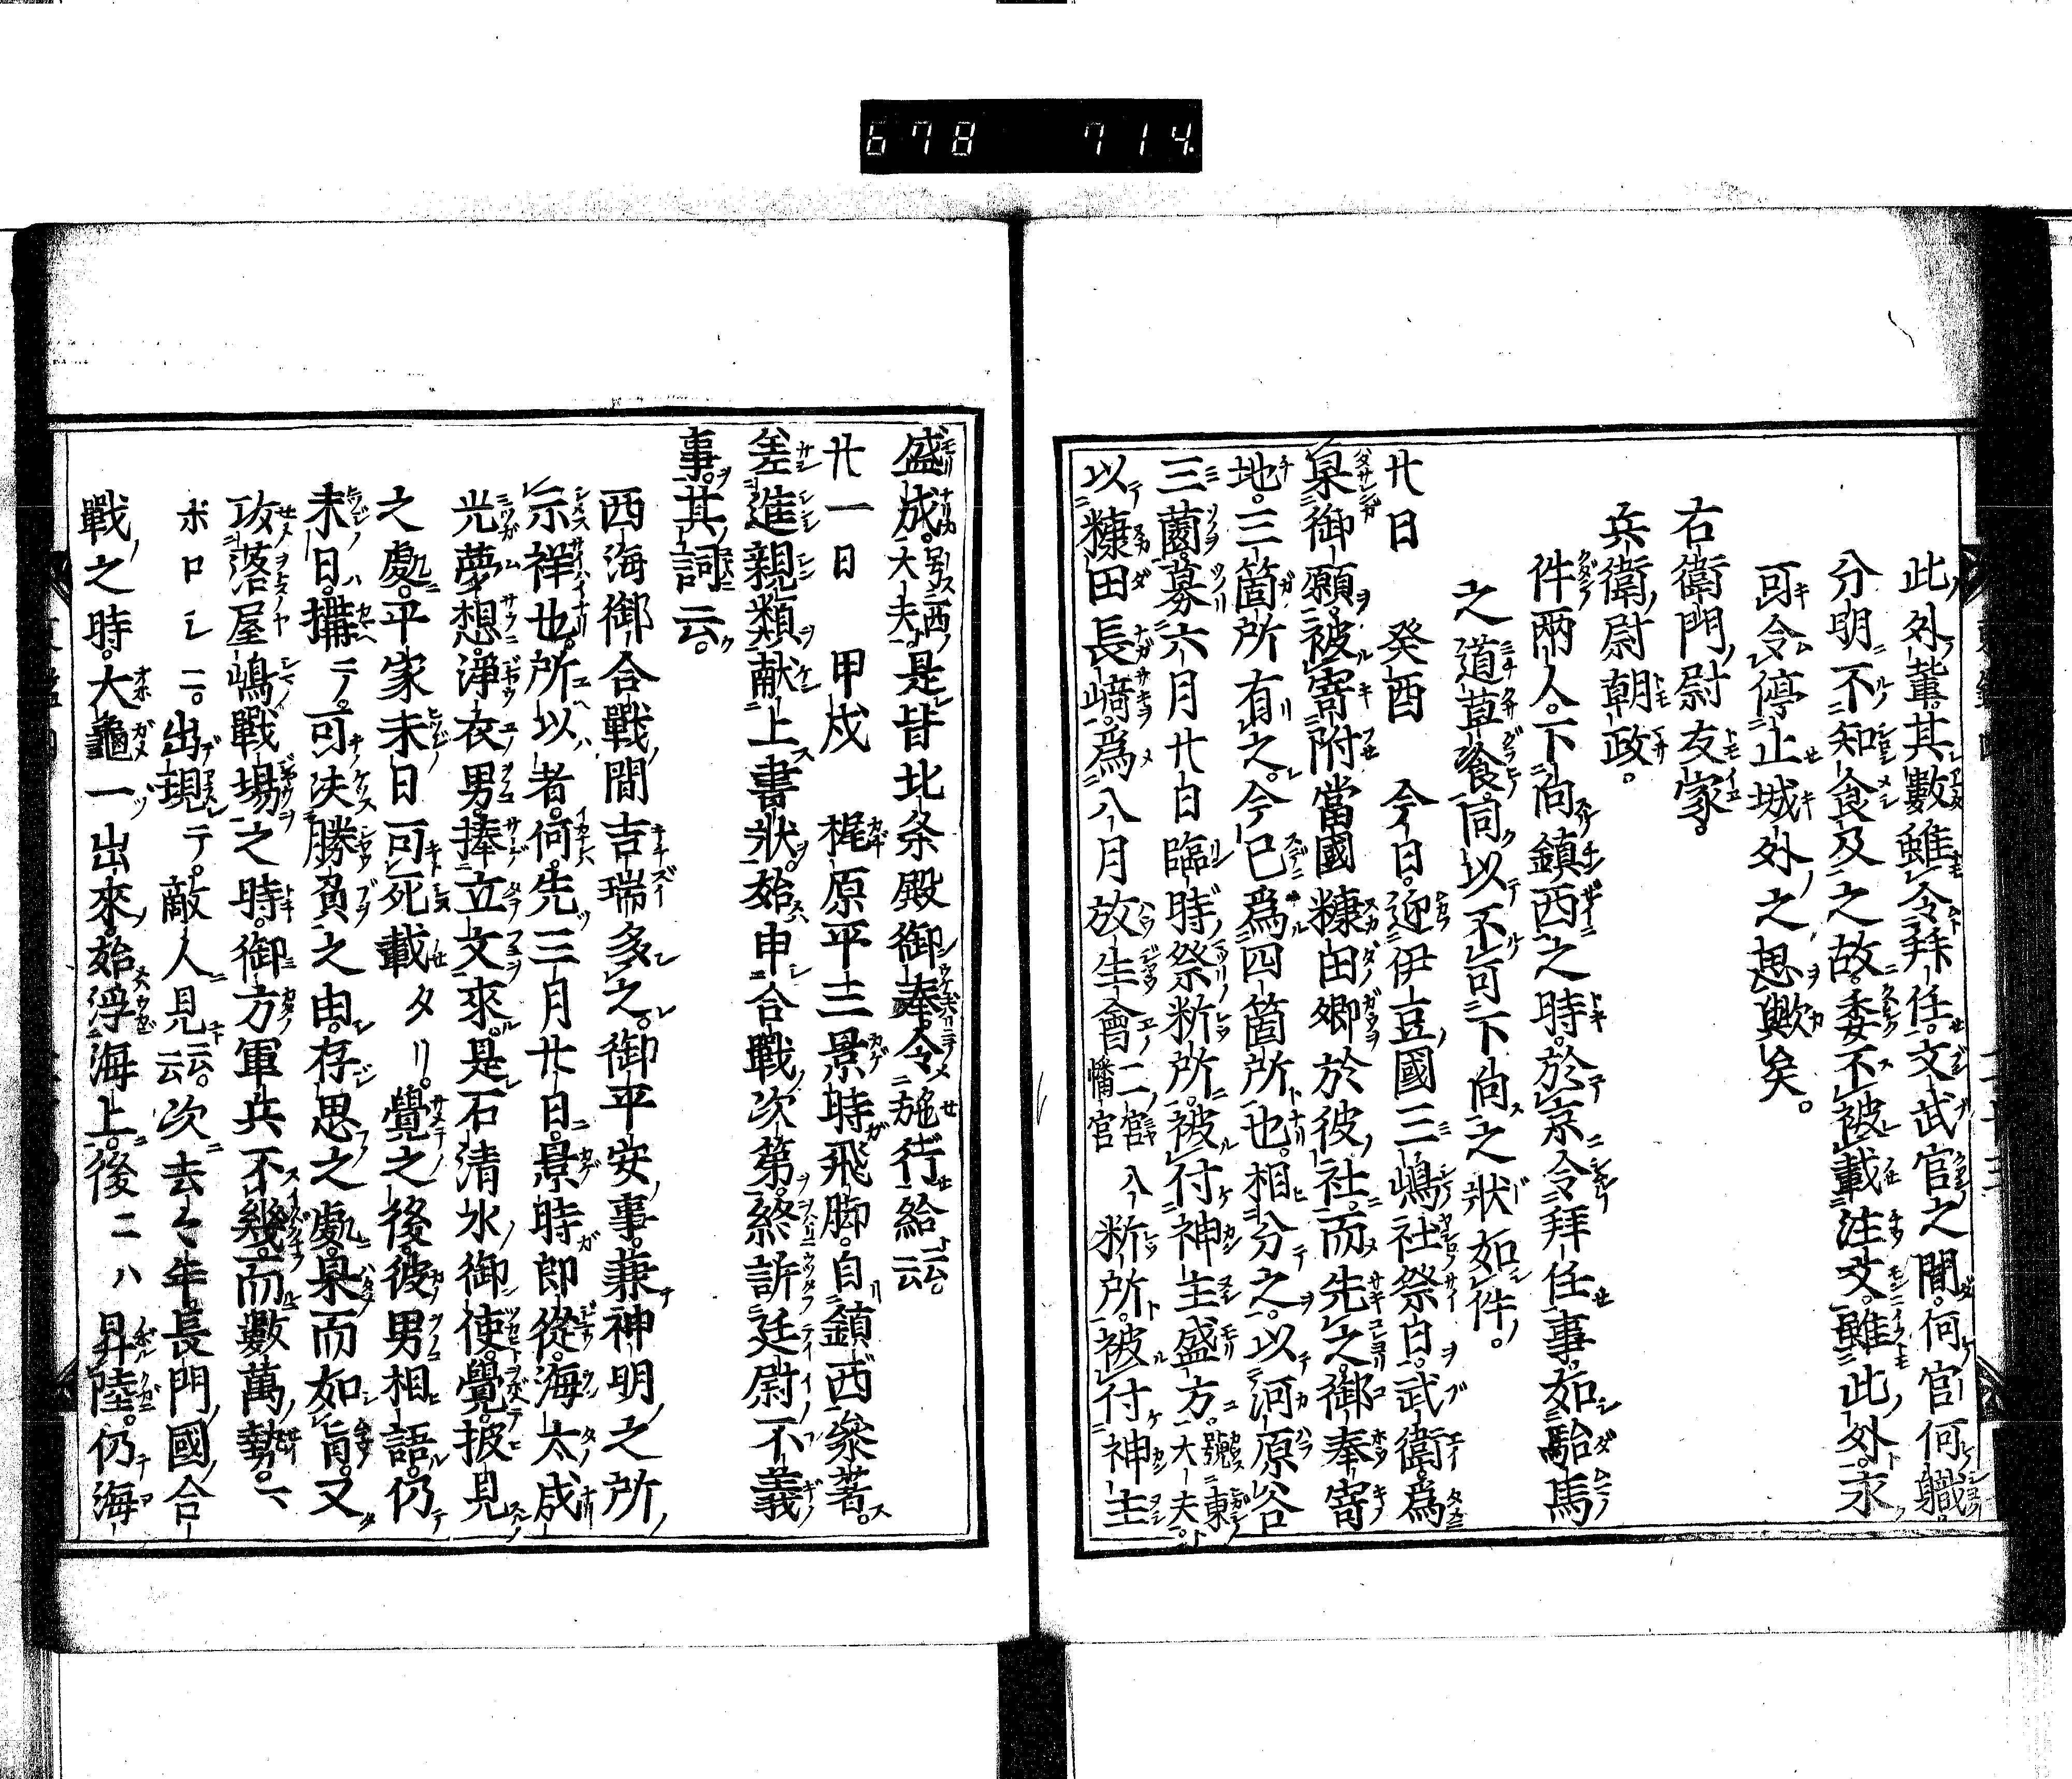 678 714
此外輩其數雖令拜任文武官之間何官何職
分明不知食及之故委不被載注文雖此外永
可令停止城外之思歟矣。
右衞門尉友家。
兵衞尉朝政。
件兩人下向鎮西之時於京令拜任事如駘馬
之道草喰同以不可下向之狀如件。
廿日 癸酉 今日迎伊豆國三嶋社祭日武衞爲
果御願被寄附當國糠田郷於彼社而先之御奉寄
地三箇所有之今已爲四箇所也相分之以河原谷
三薗募六月廿日臨時祭新所被付神主盛方号東大夫
以糠田長﨑爲八月放生會二宮八幡官新所被付神主
盛成号西大夫是皆北条殿御奉令施行給云云。
廿一日 甲戌 梶原平三景時飛脚自鎮西參著。
差進親類献上書狀始申合戰次第終訴廷尉不義
事。其詞云。
西海御合戰間吉瑞多之御平安事兼神明之所
示祥也所以者何先三月廿日景時郎從海太成
光夢想浄衣男捧立文來是石清水御使覺披見
之處平家未日可死載タリ。覺之後彼男相語仍
未日搆テ可决勝負之由存思之處果而如旨又
攻落屋嶋戰場之時御方軍兵不幾而數萬勢マ
ボロシニ出現テ敵人見云云。次去々年長門國合
戰之時大龜一出來始浮海上後ニハ昇陸仍海